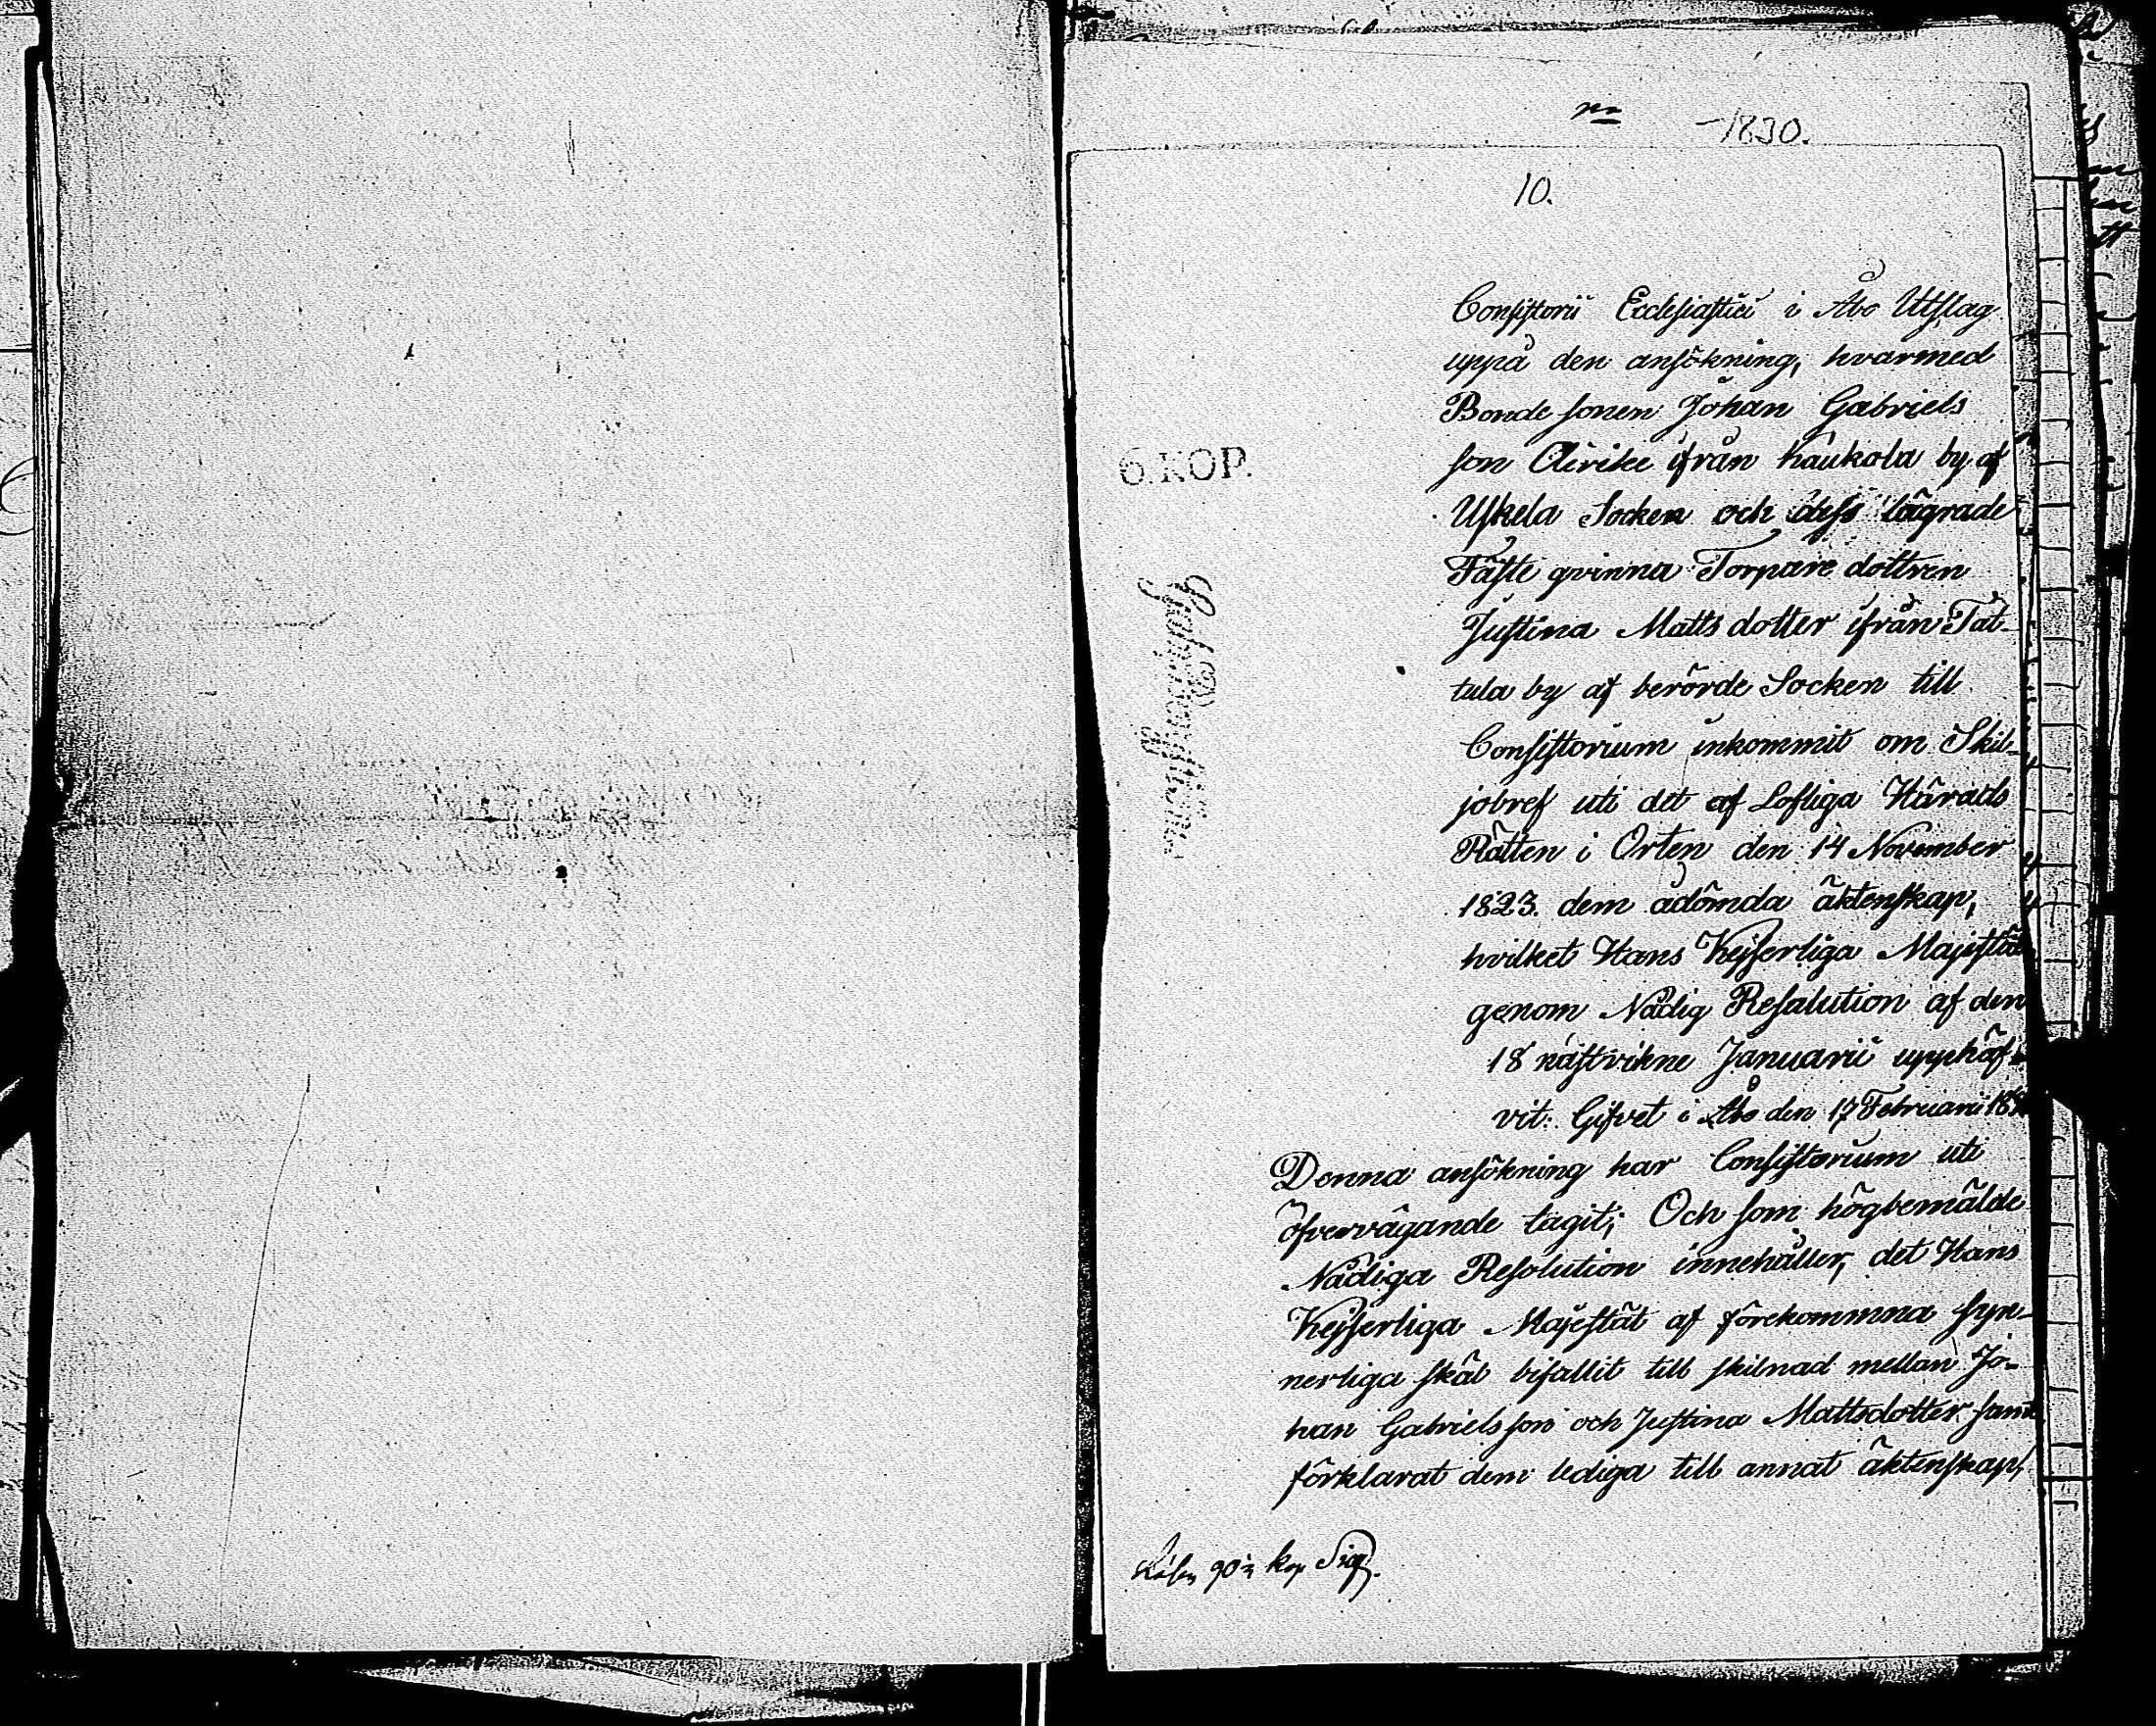 1830.
10.
Consistorii Ecclesiastici i Åbo Utslag
uppå den ansökning, hvarmed
Bonde sonen Johan Gabriels
son ifrån Kaukola by af
Uskela Socken och dess lägrade
Fäste qvinna Torpare dottren
Justina Matts dotter ifrån Tat-
tula by af berörde Socken till
Consistorium inkommit om Skil-
jobref uti det af Lofliga Härads
Rätten i Orten den 14 November
1823. dem ådömda äktenskap,
hvilket Hans Kejserliga Majestät
genom Nådig Resolution af den
18 nästvikne Januarii upphäf-
vit. Gifvet i Åbo den 17 Februarii
Denna ansökning har Consistorium uti
öfvervägande tagit; Och som högbemälde
Nådiga Resolution innehåller, det Hans
Kejserliga Majestät af förekommna syn-
nerliga skäl bifallit till skilnad mellan Jo-
han Gabriels son och Justina Mattsdotter samt
förklarat dem lediga till annat äktenskap,
6. KOP.
Lösen 90 kop Silf.